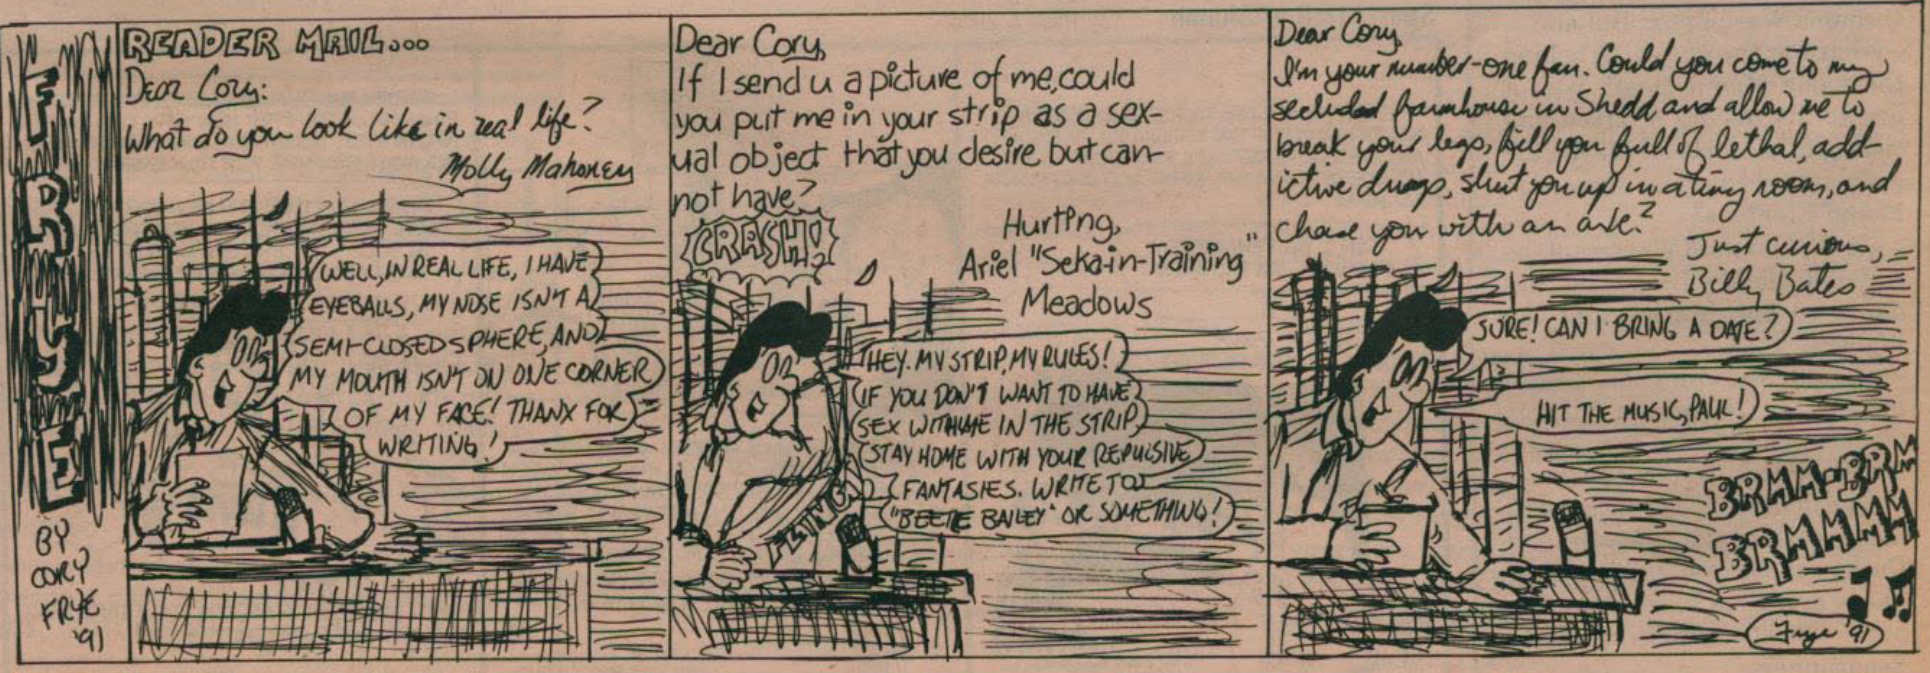 FRYE
BY
CORY
FRYE
'91
READER MAIL...
Dear Cory:
What do you look like in real life?
Molly Mahoney
WELL, IN REAL LIFE, I HAVE
EYEBALLS, MY NOSE ISN'T A
SEMI-CLOSED SPHERE, AND
MY MOUTH ISN'T ON ONE CORNER
OF MY FACE! THANX FOR
WRITING!
Dear Cory,
If I send u a picture of me, could
you put me in your strip as a sex-
ual object that you desire but can-
not have?
Hurting,
Ariel "Seka-in-Training"
Meadows
CRASH!
HEY. MY STRIP, MY RULES!
IF YOU DON'T WANT TO HAVE
SEX WITH ME IN THE STRIP,
STAY HOME WITH YOUR REPULSIVE
FANTASIES. WRITE TO
"BEETLE BAILEY" OR SOMETHING!
FLING!
Dear Cory,
I'm your number-one fan. Could you come to my
secluded farmhouse in Shedd and allow me to
break your legs, fill you full of lethal, add-
ictive drugs, shut you up in a tiny room, and
chase you with an axe?
Just curious,
Billy Bates
SURE! CAN I BRING A DATE?
HIT THE MUSIC, PAUL!
BRMM-BRM
BRMMMM
Frye '91